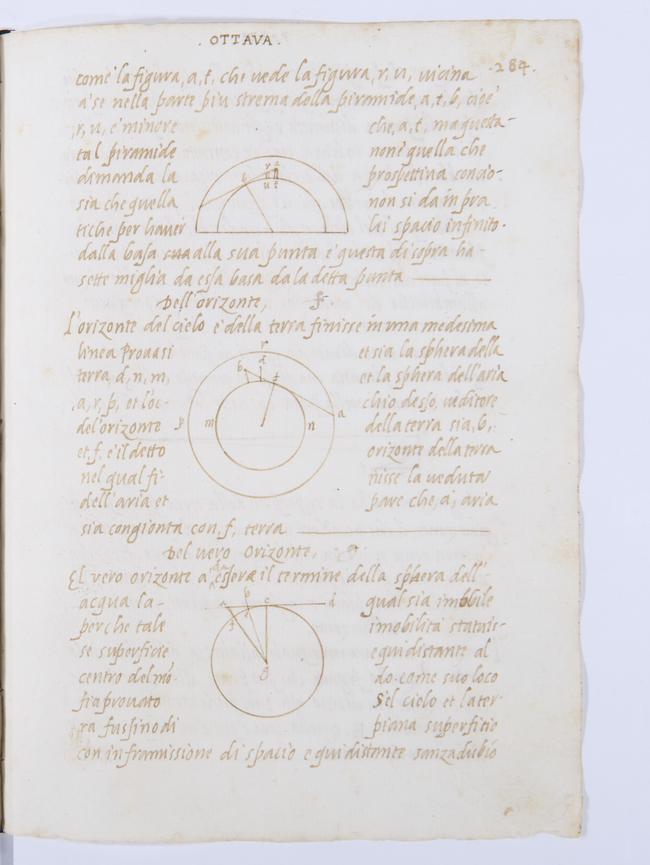 . OTTAVA .
.284.
come' la figura, a, t, che vede la figura, r, n, vicina
a'se nella parte piu strema della piramide, a, t, b, cioe'
,r, n, e' minore che, a, t, ma questa
tal piramide none' quella che
dimanda la prospettiva concio-
sia che quella non si da in pra
tiche per haver lei spacio infinito.
dalla basa sua alla sua punta e' questa di sopra ha
sette miglia da essa basa da la detta punta
r a
b
u t
Dell'orizonte,
L'orizonte del cielo e' della terra finisse in una medesma
linea Provasi et sia la sphera della
terra, d, n, m, et la sphera dell'aria
,a, r, p, et l'oc- chio desso, veditore
del'orizonte della terra sia, b,
et, f, e' il detto orizonte della terra
nel qual fi- nisse la veduta
dell'aria et pare che, a, aria
sia congionta con, f, terra
r
d
b f
a
p m n
Del vero Orizonte,
El vero orizonte a esserae il termine della sphera dell'
acqua la- qual sia imobile
perche tale imobilita statuis-
se superficie equidistante al
centro del mo- do come suo loco
fia provato Sel cielo et la ter
ra fussino di piana superficie
con inframissione di spacio equidistante sanza dubio
a b c d
f
g